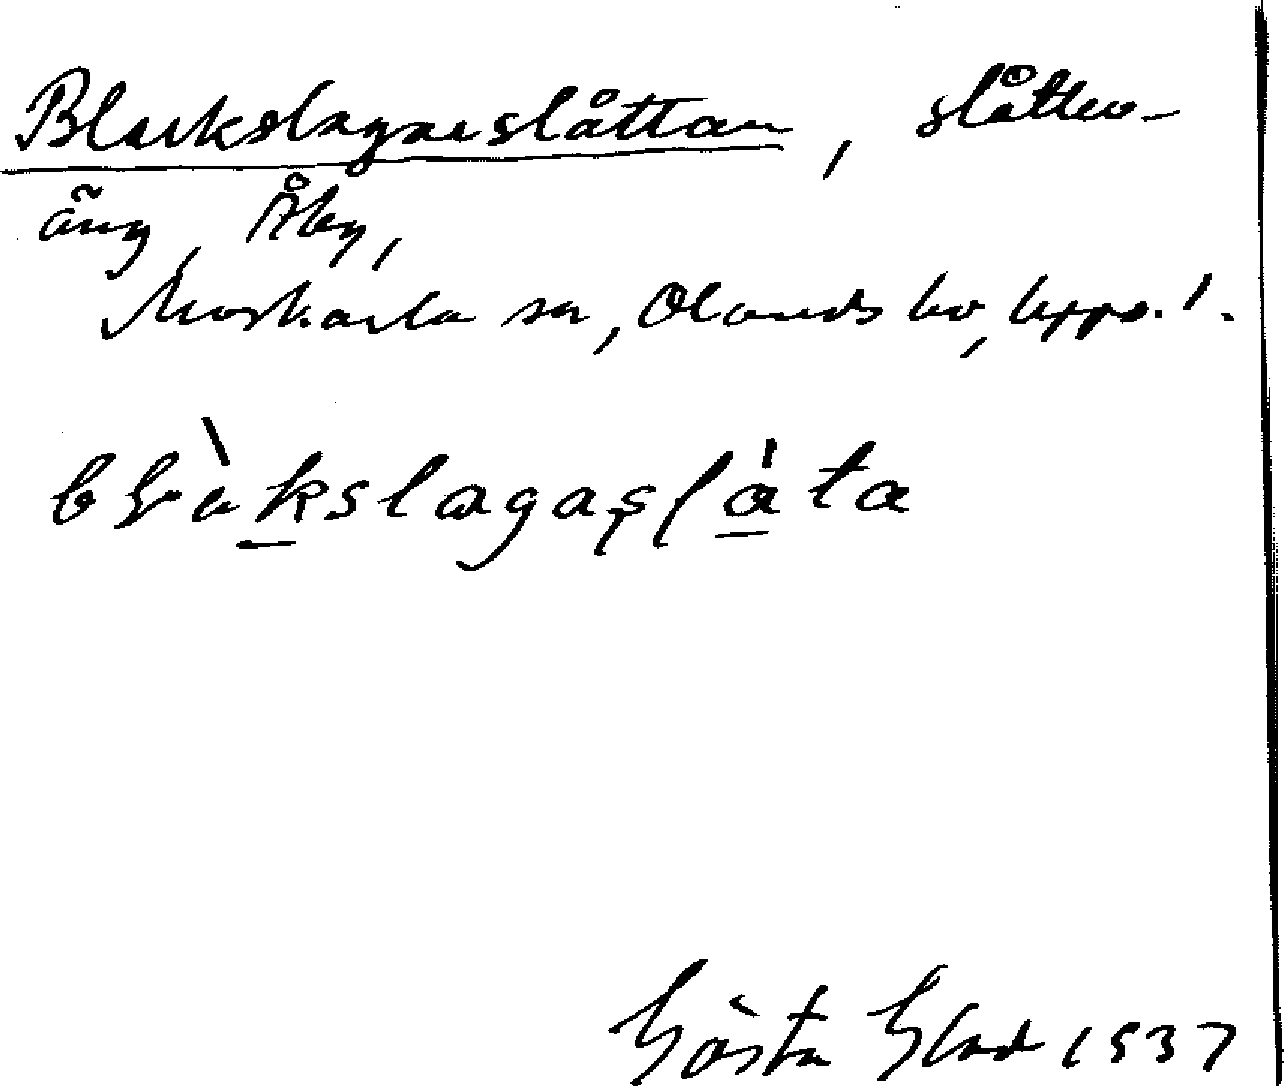 Blackslagarslåttan, slåtter-
äng, Åby,
Morkarla sn, Olands hd, Upps. l.
blàkslagaslåta
Gösta Glad 1937